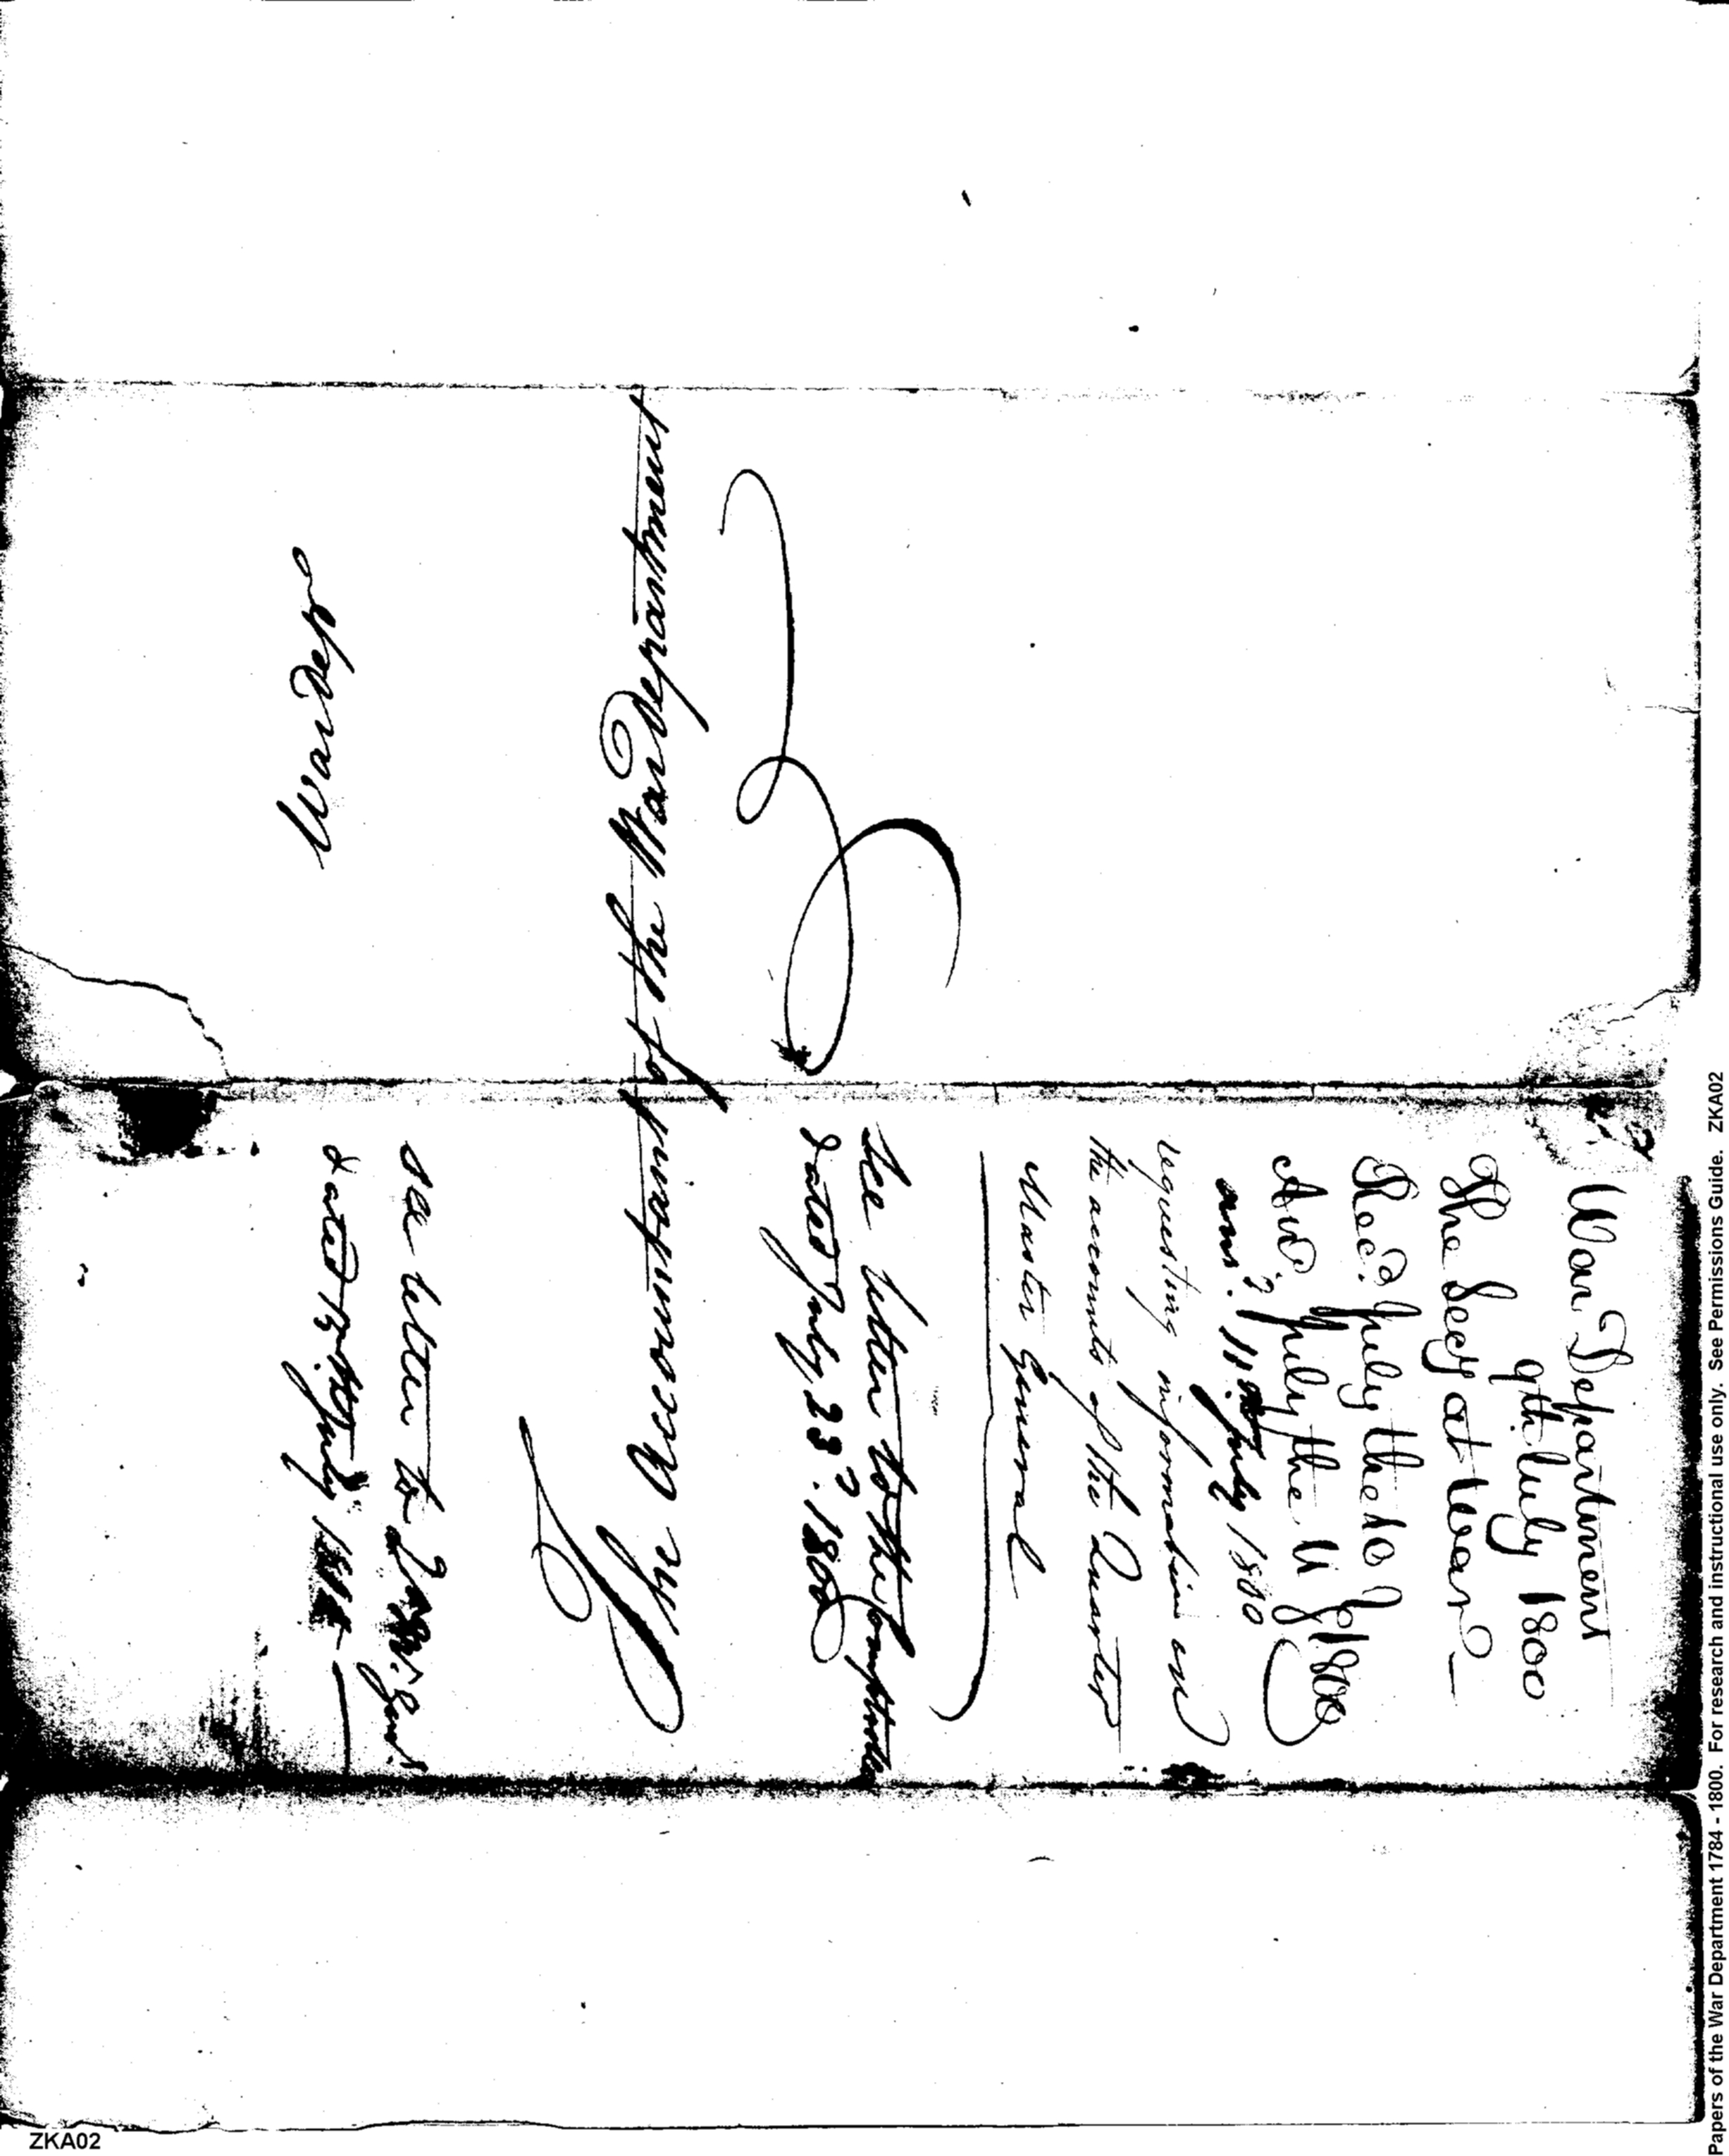 War Department
9th July 1800
The Secy at War
Rec.d July the 10
And July the 11 } 1800
ans.d 11th July 1800
requesting information on
the accounts of the Quarter
Master General
See letter to the Comptroller
dated July 23d. 1800
War Dep
The Accountant of the War Department
see letter to Q. Mr. Genl.
dated July
Papers of the War Department 1784 - 1800. For research and instructional use only. See Permissions Guide. ZKA02
ZKA02